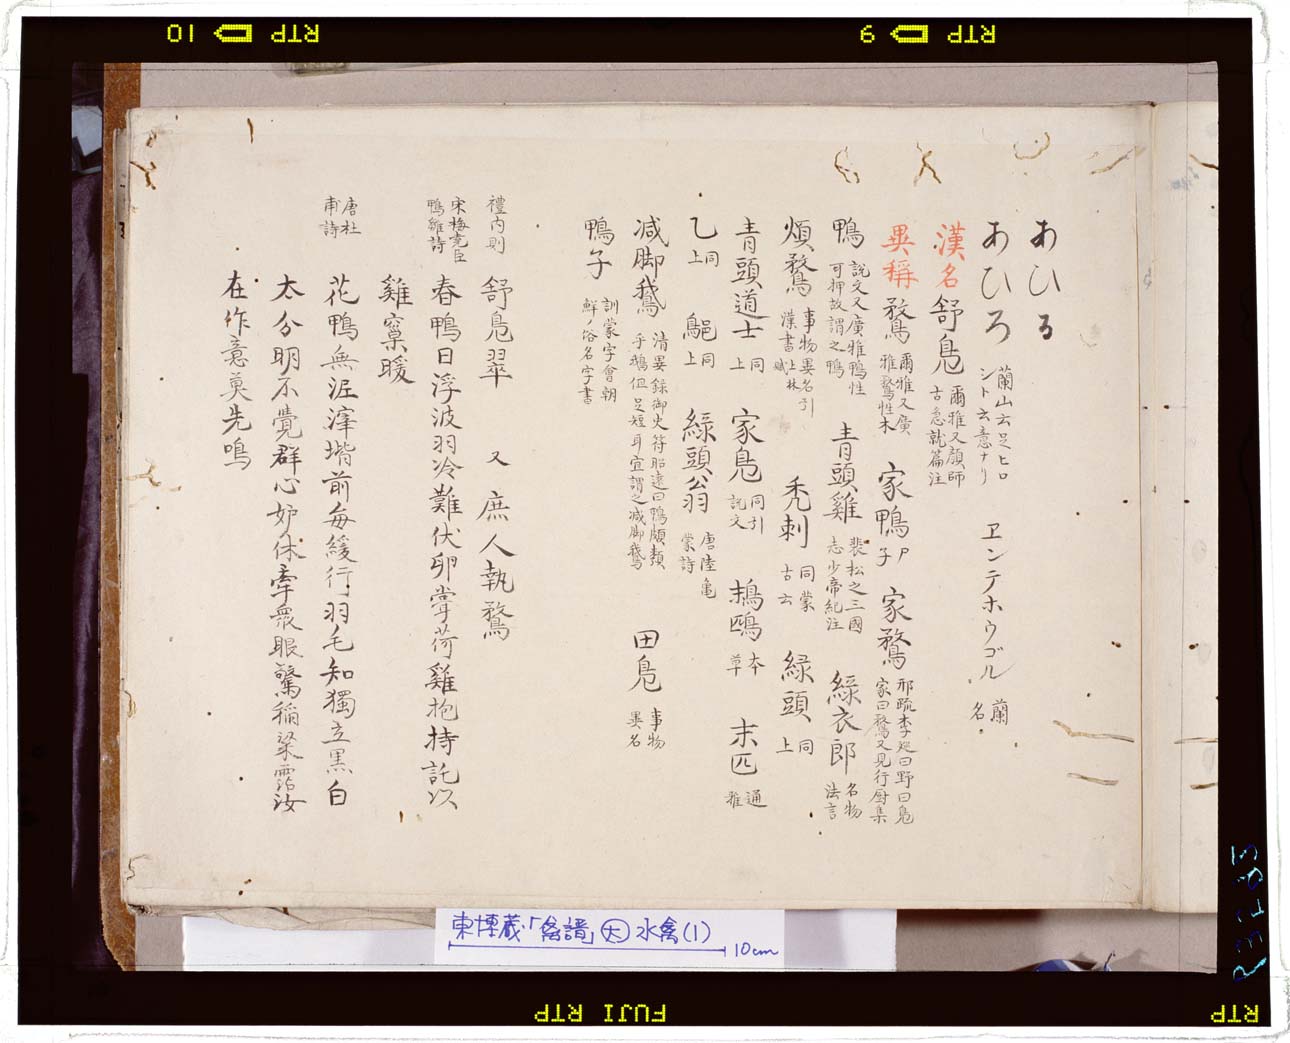 RTP 10
RTP 9
あひる
あひろ 蘭山云足ヒロシト云意ナリ ヱンテホウゴル 蘭名
漢名 舒鳧 爾雅又顔師古急就篇注
異稱 鶩 爾雅又廣雅鶩性木 家鴨 尸子 家鶩 邢疏李廵曰野曰鳧家曰鶩又見行厨集
鴨 説文又廣雅鴨性可押故謂之鴨 青頭雞 裴松之三國志少帝紀注 緑衣郎 名物法言
煩鶩 事物異名引漢書上林賦 禿刺 同蒙古云 緑頭 同上
青頭道士 同上 家鳧 同引説文 鴨 本草 末匹 通雅
乙 同上 同上 緑頭公羽 唐陸亀蒙詩
減脚鵝 清異録御史符昭遠曰鴨頗類乎鵝但足短耳宜謂之減脚鵝 田鳧 事物異名
鴨子 訓蒙字會朝鮮俗名字書
禮内則 舒鳧翠 又 庶人執鶩
宋梅尭臣鴨雛詩 春鴨日浮波羽冷難伏卵嘗荷雞抱持託以
雞窠暖
唐杜甫詩 花鴨無泥滓堦前毎緩行羽毛知獨立黒白
太分明不覺群心妒休牽衆眼驚稲粱霑汝
在作意莫先鳴
東博蔵「禽譜」大 水禽(1)
10cm
FUJI RTP
RTP